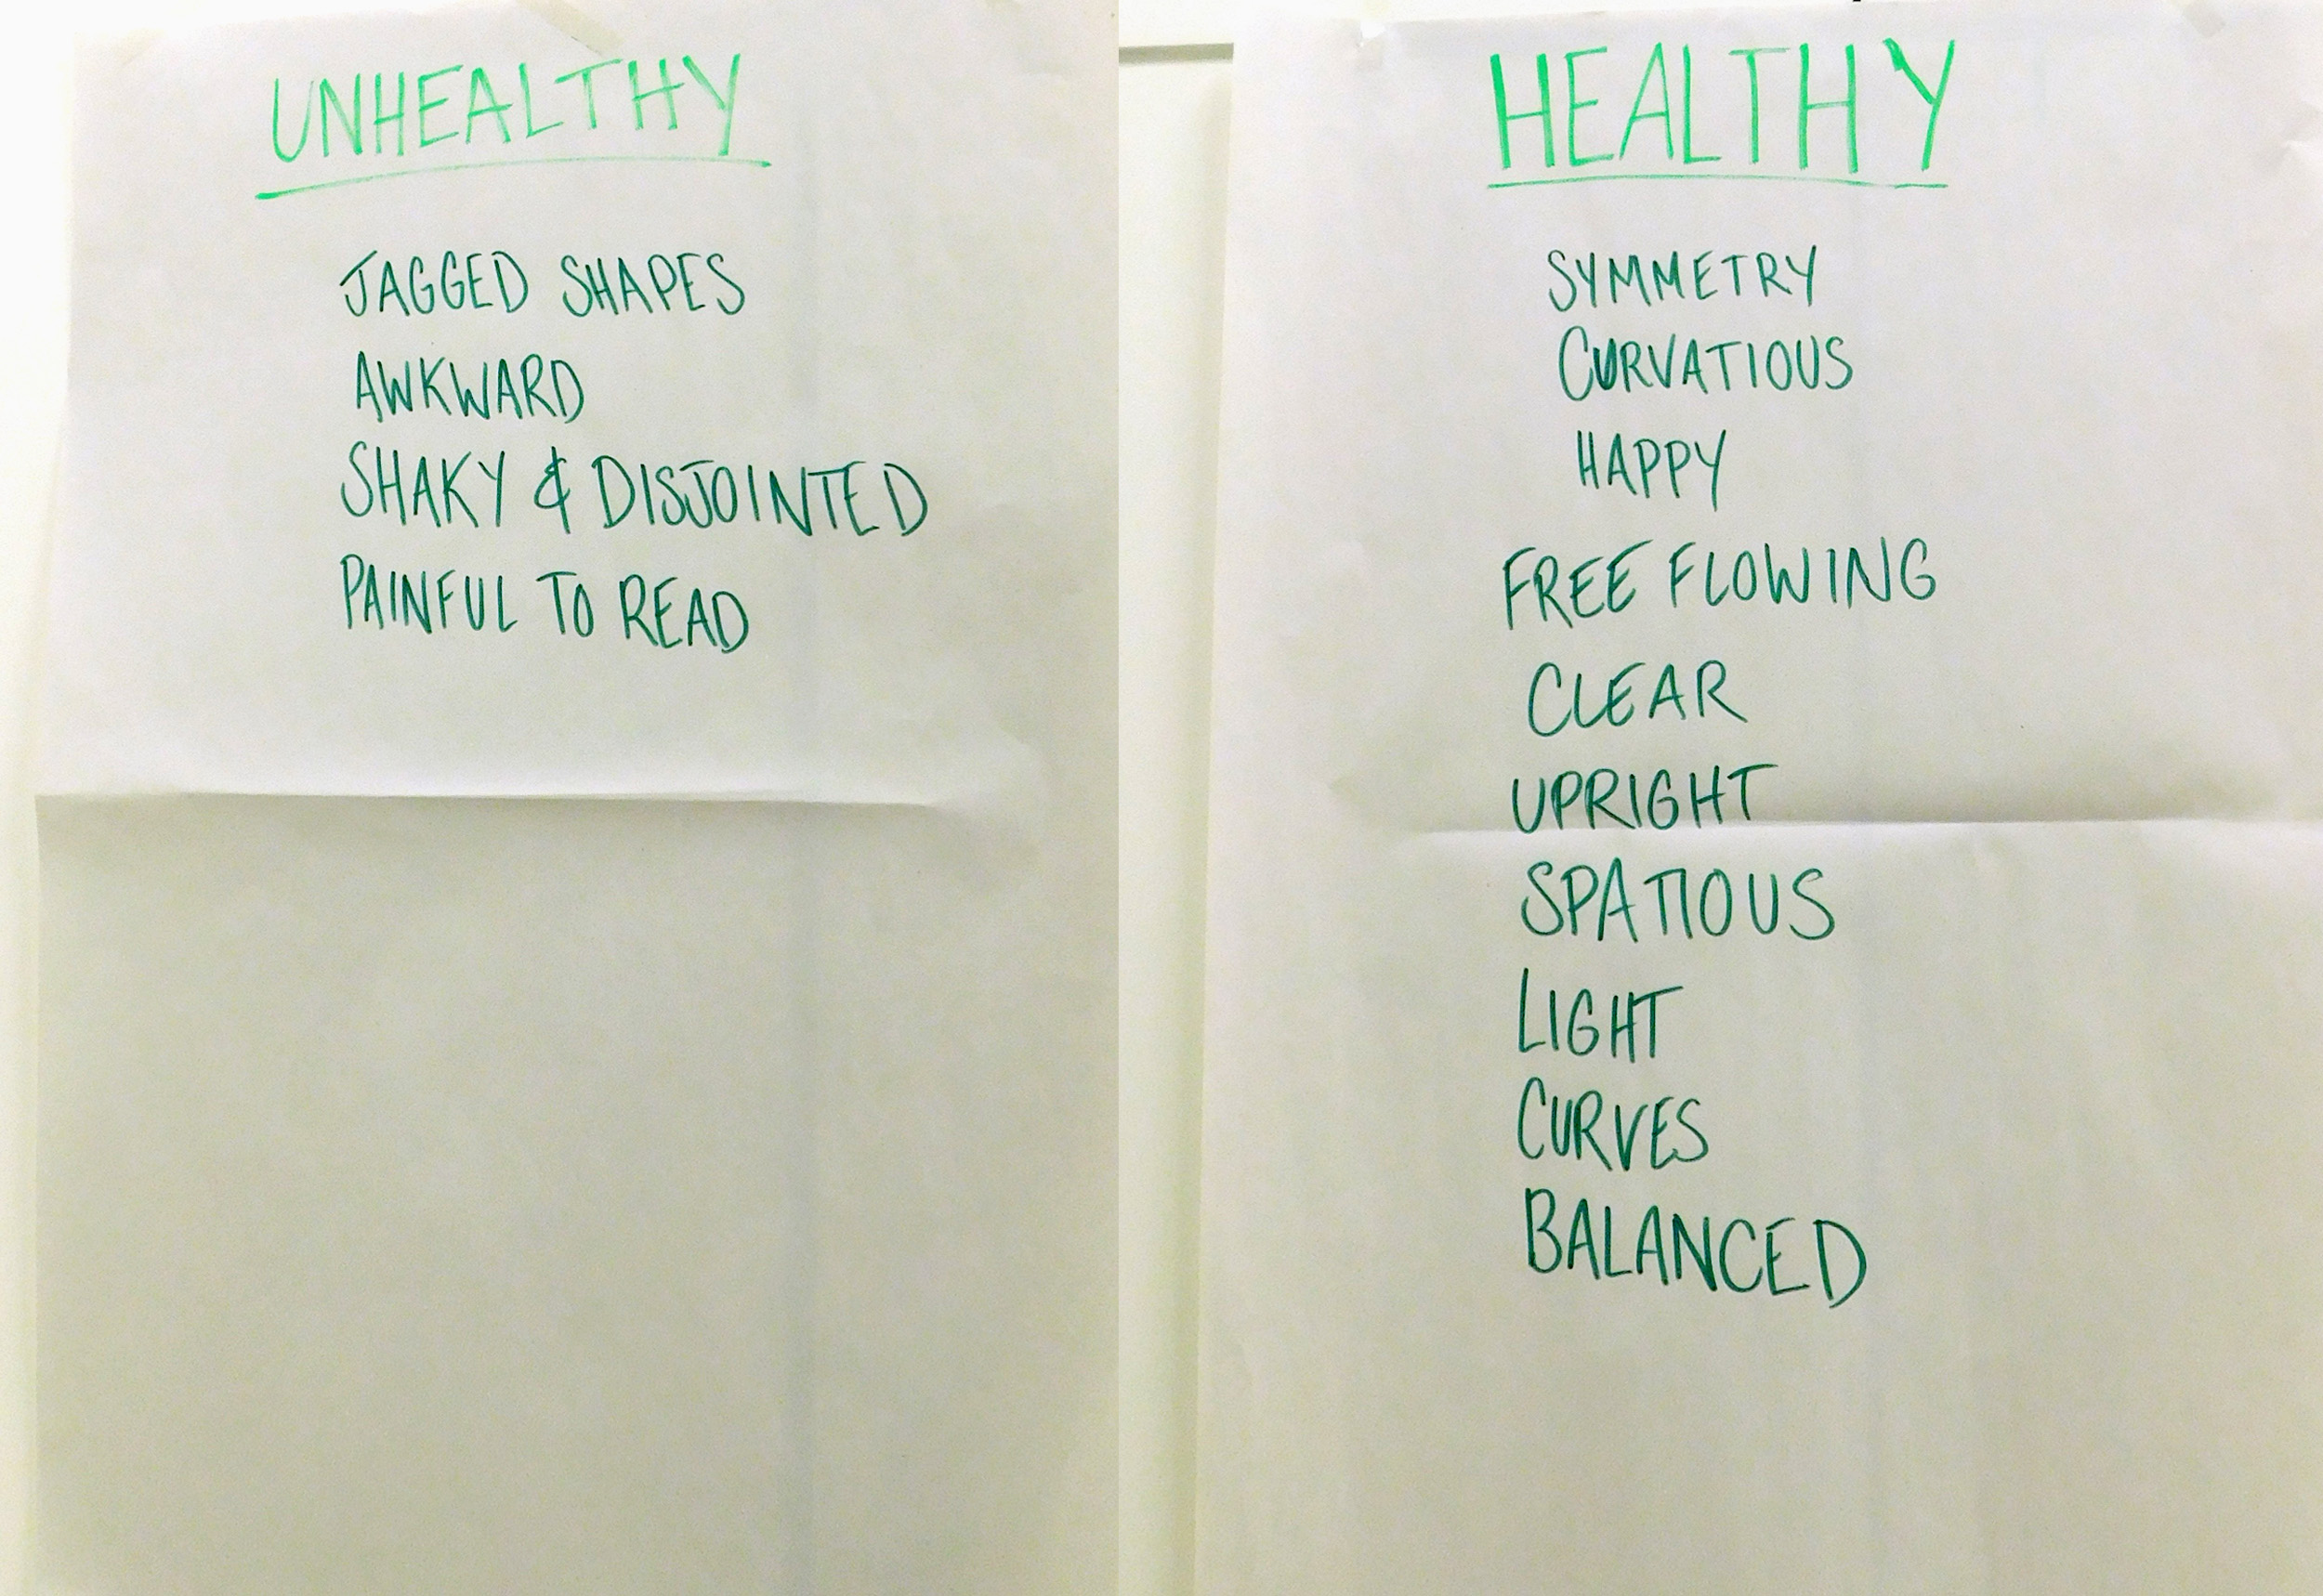 UNHEALTHY
JAGGED SHAPES
AWKWARD
SHAKY & DISJOINTED
PAINFUL TO READ
HEALTHY
SYMMETRY
CURVATIOUS
HAPPY
FREE FLOWING
CLEAR
UPRIGHT
SPATIOUS
LIGHT
CURVES
BALANCED